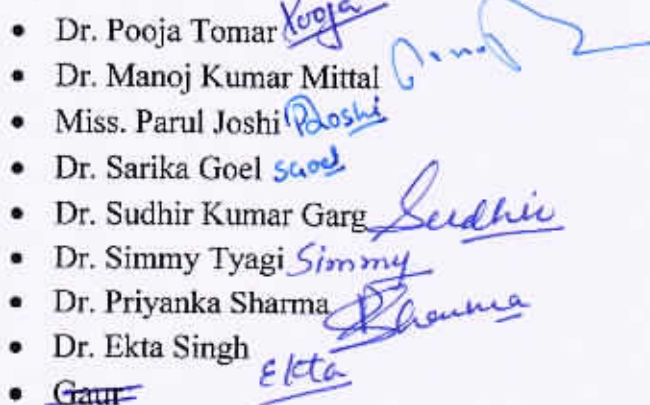 • Dr. Pooja Tomar Pooja
• Dr. Manoj Kumar Mittal
• Miss. Parul Joshi PJoshi
• Dr. Sarika Goel SGoel
• Dr. Sudhir Kumar Garg Sudhir
• Dr. Simmy Tyagi Simmy
• Dr. Priyanka Sharma PSharma
• Dr. Ekta Singh Ekta
• Gaur